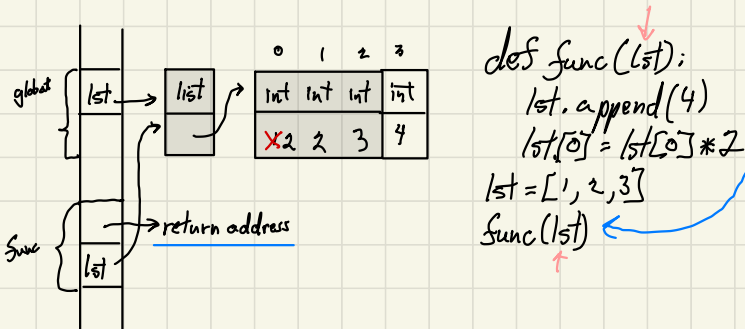 0 1 2 3
global
lst
list
int int int int
1 2 2 3 4
func
return address
lst
def func(lst):
lst.append(4)
lst[0] = lst[0] * 2
lst = [1, 2, 3]
func(lst)